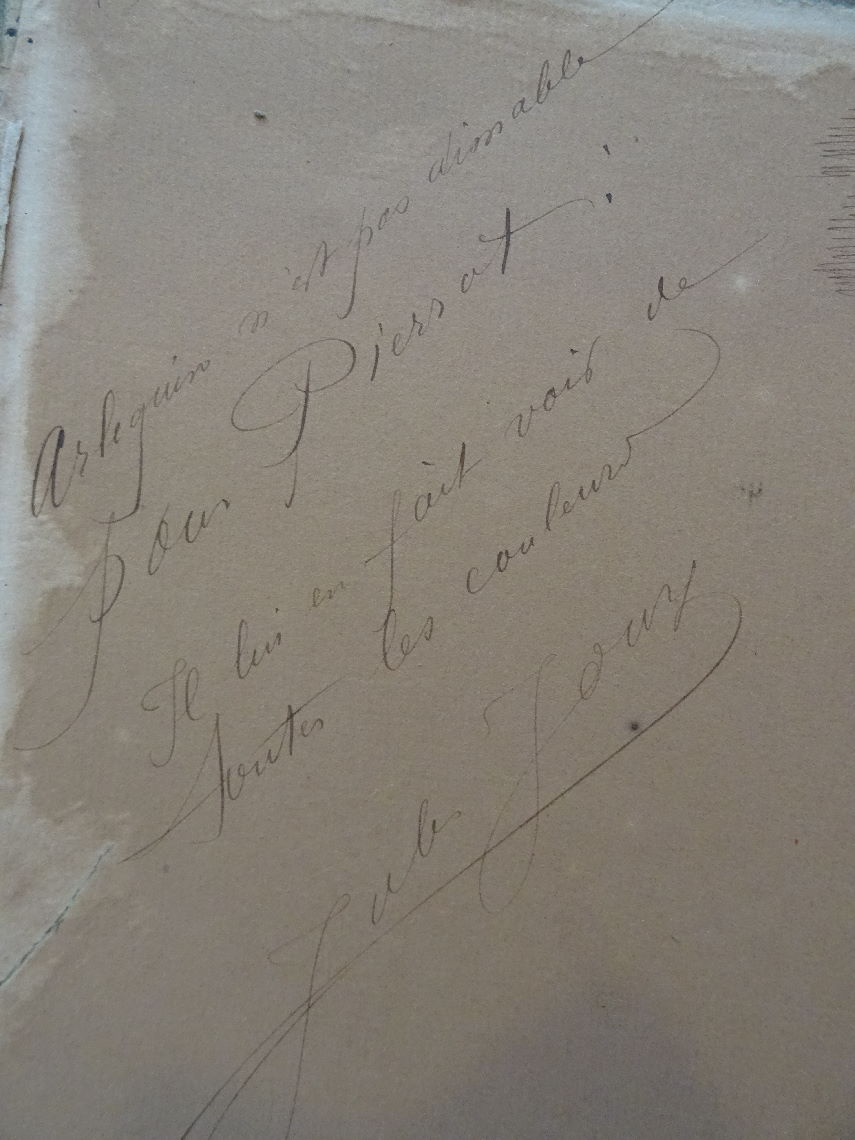 Arlequin n'est pas aimable
pour Pierrot !
Il lui en fait voir de
toutes les couleurs
Jules Joux